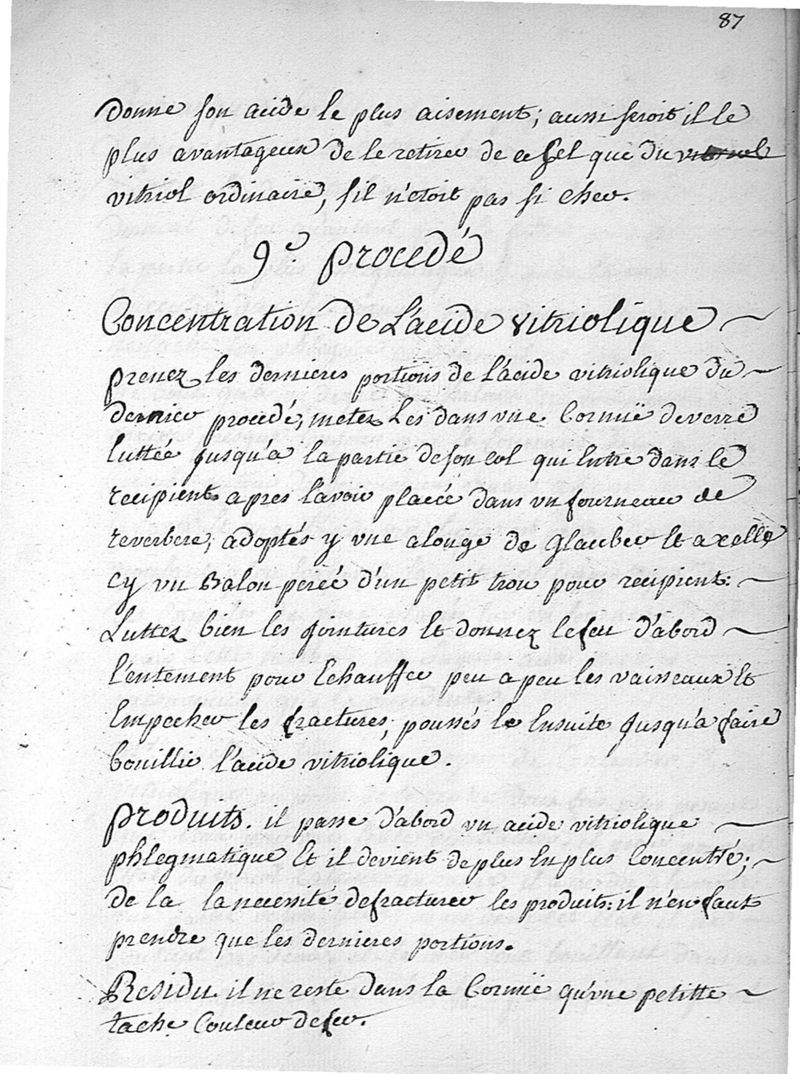 87
donne son acide le plus aisement; aussi seroit il le
plus avantageux de le retirer de ce sel que du vitriol
vitriol ordinaire, s'il n'etoit pas si cher.
9e. procedé
Concentration de L'acide vitriolique
prenez les dernieres portions de L'acide vitriolique du
dernier procedé, metez Les dans vne Cornüe de verre
luttée jusqu'a la partie de son col qui Entre dans le
recipient apres l'avoir placée dans vn fourneau de
reverbere, adoptés y vne alonge de Glauber Et a celle
cy vn Balon percé d'un petit trou pour recipient.
Luttez bien les jointures Et donnez le feu d'abord
lentement pour Echauffer peu a peu les vaisseaux Et
Empecher les fractures, poussés le Ensuite jusqu'a faire
bouillir l'acide vitriolique.
produits. il passe d'abord vn acide vitriolique
phlegmatique Et il devient de plus En plus Concentré;
de la la necessité de fracturer les produits: il n'en faut
prendre que les dernieres portions.
Residu il ne reste dans la Cornüe qu'vne petitte
tache Couleur de fer.